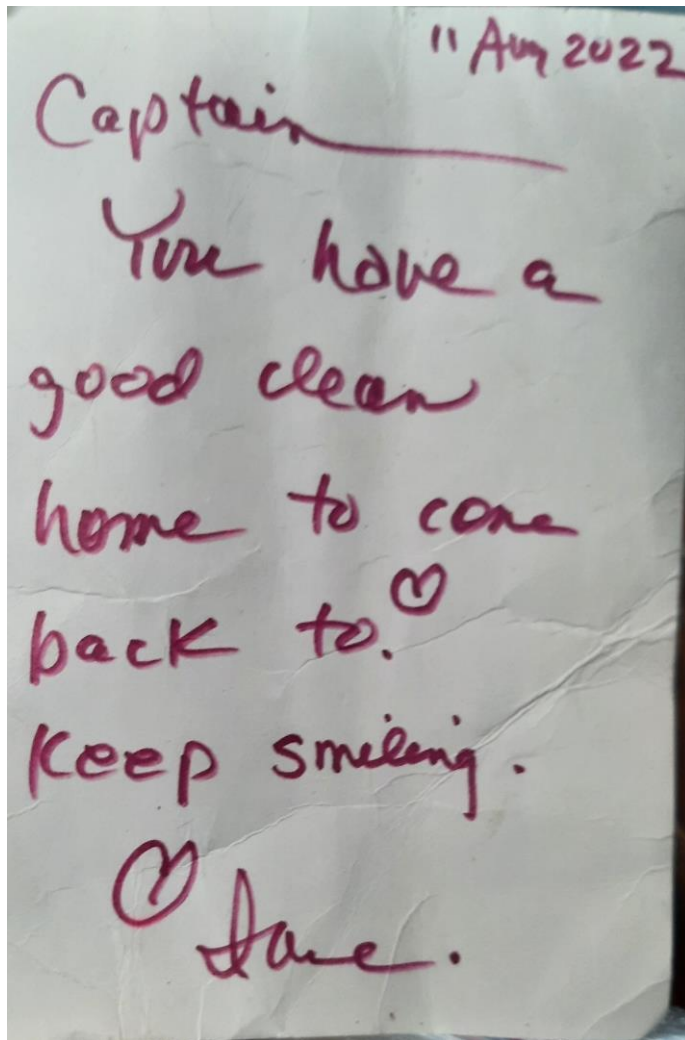 11 Aug 2022
Captain
You have a
good clean
home to come
back to.
Keep smiling.